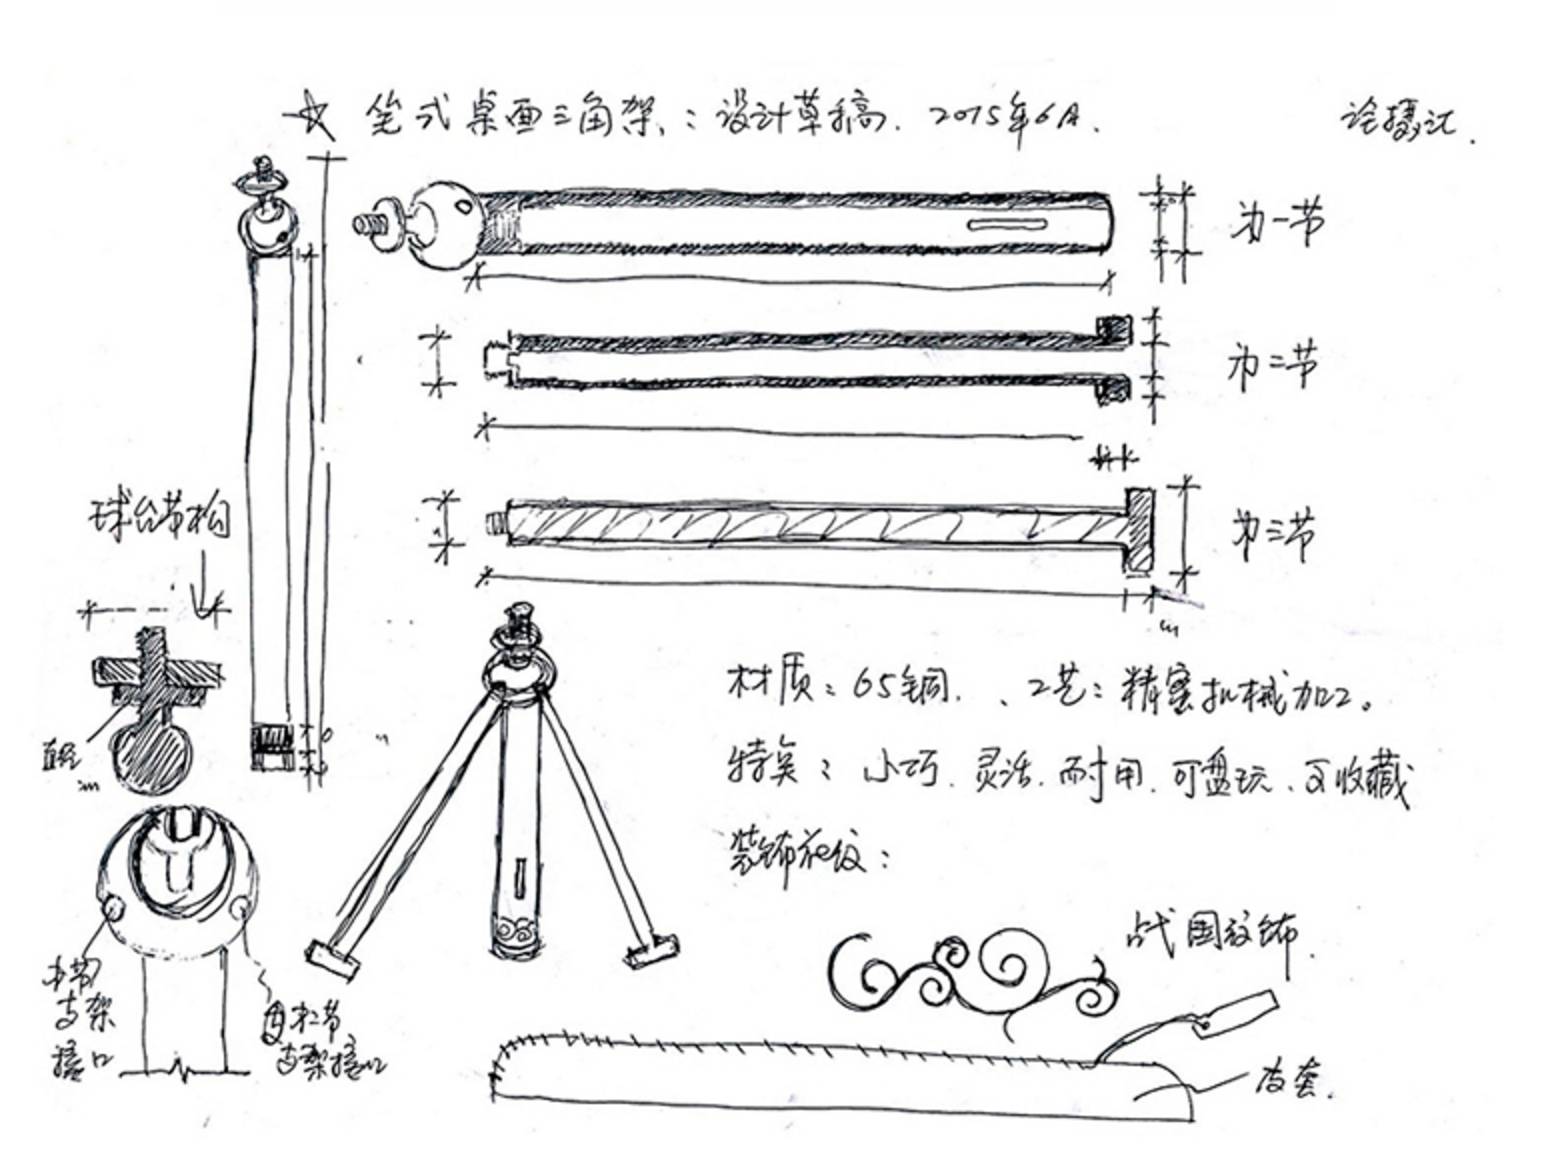 笔式桌面三角架：设计草稿. 2015年6月.
论摄记.
为一节
为二节
球台节构
为三节
材质：65铜、工艺：精密机械加工。
直径
特矣：小巧.灵活.耐用.可盘玩、可收藏
装饰花纹：
战国纹饰.
支架
接口
支架接口
皮套.